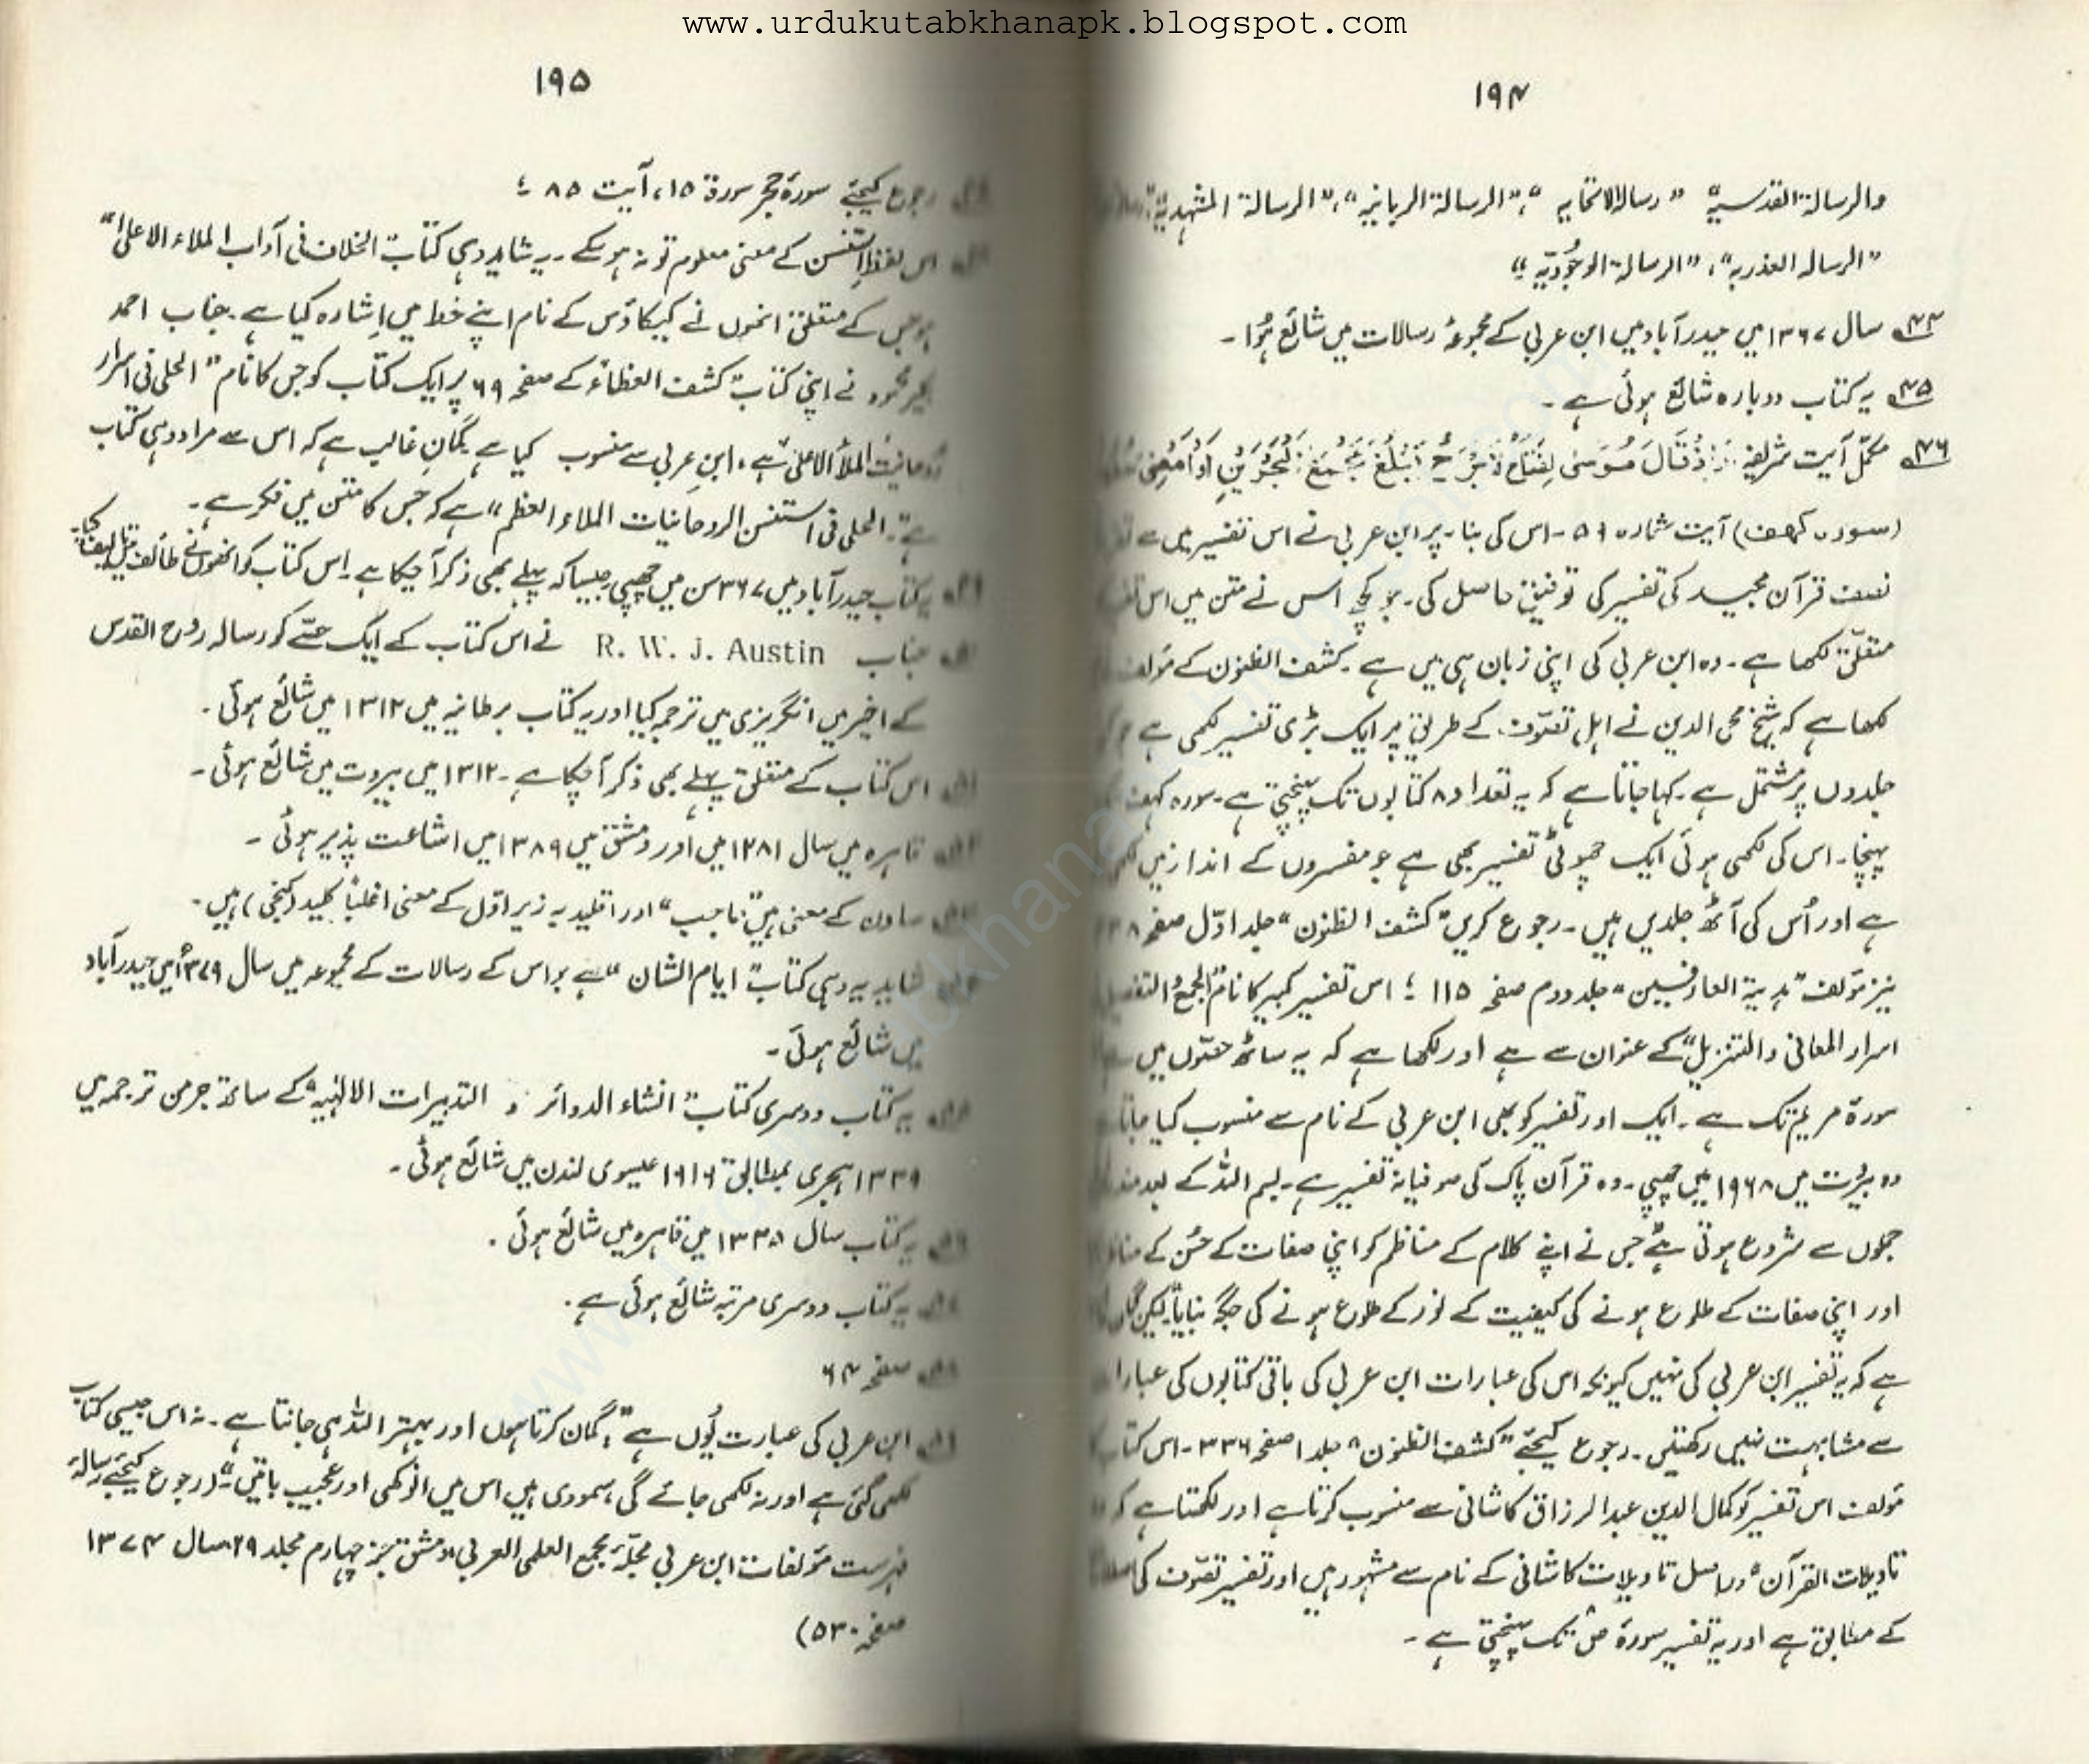 www.urdukutabkhanapk.blogspot.com
۱۹۴
والرسالۃ القدسیہ" "رسالۃ الاتحادیہ"، "الرسالۃ الربانیہ"، "الرسالۃ المشہدیۃ"،
"الرسالہ العذریہ"، "الرسالۃ الوجُودیّہ"؛
۴۴؎ سال ۱۳۶۷ میں حیدر آباد میں ابن عربی کے مجموعۂ رسالات میں شائع ہُوا۔
۴۵؎ یہ کتاب دوبارہ شائع ہوئی ہے۔
۴۶؎ مکمّل آیت شریفہ: وَاِذْ قَالَ مُوسٰی لِفَتَاہُ لَا اَبْرَحُ حَتّٰی اَبْلُغَ مَجْمَعَ الْبَحْرَیْنِ اَوْ اَمْضِیَ
(سورہ کہف) آیت شمارہ ۵۹۔ اس کی بنا۔ پر ابن عربی نے اس تفسیر میں سے
نصف قرآن مجید کی تفسیر کی توفیق حاصل کی۔ جو کچھ اس نے متن میں اس
متعلّق لکھا ہے۔ وہ ابن عربی کی اپنی زبان ہی میں ہے۔ کشف الظنون کے مؤلف
لکھا ہے کہ شیخ محی الدین نے اہلِ تصوّف کے طریق پر ایک بڑی تفسیر لکھی ہے
جلدوں پر مشتمل ہے۔ کہا جاتا ہے کہ یہ تعداد ۸ کتابوں تک پہنچتی ہے۔ سورہ کہف
پہنچا۔ اس کی لکھی ہوئی ایک چھوٹی تفسیر بھی ہے جو مفسروں کے انداز میں
ہے اور اُس کی آٹھ جلدیں ہیں۔ رجوع کریں "کشف الظنون" جلد اوّل صفحہ
نیز مؤلف "ہدیۃ العارفین" جلد دوم صفحہ ۱۱۵؛ اس تفسیر کبیر کا نام "الجمع والتفصیل
اسرار المعانی والتنزیل" کے عنوان سے ہے اور لکھا ہے کہ یہ ساٹھ حصّوں میں
سورۃ مریم تک ہے۔ ایک اور تفسیر کو بھی ابن عربی کے نام سے منسوب کیا جاتا
وہ بیرُت میں ۱۹۶۸ میں چھپی۔ وہ قرآن پاک کی صوفیانہ تفسیر ہے۔ بسم اللہ کے بعد
جملوں سے شروع ہوتی ہے "جس نے اپنے کلام کے مناظم کو اپنی صفات کے حُسن کے
اور اپنی صفات کے طلوع ہونے کی کیفیت کے نور کے طلوع ہونے کی جگہ بنایا" لیکن
ہے کہ یہ تفسیر ابن عربی کی نہیں کیونکہ اس کی عبارات ابن عربی کی باقی کتابوں کی
سے مشابہت نہیں رکھتیں۔ رجوع کیجئے "کشف الظنون" جلد ۱ صفحہ ۳۳۶۔ اس کتاب
مؤلف اس تفسیر کو کمال الدین عبدالرزاق کاشانی سے منسوب کرتا ہے اور لکھتا ہے کہ
تاویلات القرآن" دراصل تاویلات کاشانی کے نام سے مشہور ہیں اور تفسیر تصوّف کی
کے مطابق ہے اور یہ تفسیر سورۃ ص تک پہنچتی ہے۔
۱۹۵
رجوع کیجئے سورۃ حجر سورۃ ۱۵، آیت ۸۵؛
اس لفظ استنسن کے معنی معلوم تو نہ ہو سکے۔ یہ شاید وہی کتاب الخلاف فی آداب الملاء الاعلیٰ"
ہو جس کے متعلق انھوں نے کیکاؤس کے نام اپنے خط میں اِشارہ کیا ہے۔ جناب احمد
نے اپنی کتاب "کشف الغطاء" کے صفحہ ۶۹ پر ایک کتاب کو جس کا نام "الحلی فی اسرار
روحانیت الملأ الاعلیٰ" ہے، ابنِ عربی سے منسوب کیا ہے گمانِ غالب ہے کہ اس سے مراد وہی کتاب
ہے "الحلی فی استنسن الروحانیات الملاء العظم" ہے کہ جس کا متن میں ذکر ہے۔
یہ کتاب حیدر آباد میں ۳۶۷ سن میں چھپی جیسا کہ پہلے بھی ذکر آ چکا ہے۔ اس کتاب کو انھوں نے طائف میں تالیف کیا۔
جناب R. W. J. Austin نے اس کتاب کے ایک حصّے کو رسالہ روح القدس
کے اخیر میں انگریزی میں ترجمہ کیا اور یہ کتاب برطانیہ میں ۱۳۱۲ میں شائع ہوئی۔
اس کتاب کے متعلق پہلے بھی ذکر آ چکا ہے۔ ۱۳۱۲ میں بیروت میں شائع ہوئی۔
قاہرہ میں سال ۱۲۸۱ میں اور دمشق میں ۱۳۸۹ میں اشاعت پذیر ہوئی۔
سادن کے معنی ہیں "حاجب" اور اقلید بہ زیر اوّل کے معنی اغلباً کلید (کنجی) ہیں۔
شاید یہ وہی کتاب "ایام الشان" ہے جو اس کے رسالات کے مجموعہ میں سال ۱۳۷۹ میں حیدر آباد
میں شائع ہوئی۔
یہ کتاب دوسری کتاب "انشاء الدوائر و التدبیرات الالہٰیہ" کے ساتھ جرمن ترجمہ میں
۱۳۳۹ ہجری بمطابق ۱۹۱۹ عیسوی لندن میں شائع ہوئی۔
یہ کتاب سال ۱۳۳۵ میں قاہرہ میں شائع ہوئی۔
یہ کتاب دوسری مرتبہ شائع ہوئی ہے۔
صفحہ ۶۴
ابن عربی کی عبارت یُوں ہے "گمان کرتا ہوں اور بہتر اللہ ہی جانتا ہے۔ نہ اس جیسی کتاب
لکھی گئی ہے اور نہ لکھی جائے گی، سمودی ہیں اس میں انوکھی اور عجیب باتیں"۔ (رجوع کیجئے رسالہ
فہرست مؤلفات ابن عربی مجلّہ مجمع العلمی العربی دمشق جز چہارم مجلد ۲۹ سال ۱۳۷۴
صفحہ ۵۳۰)